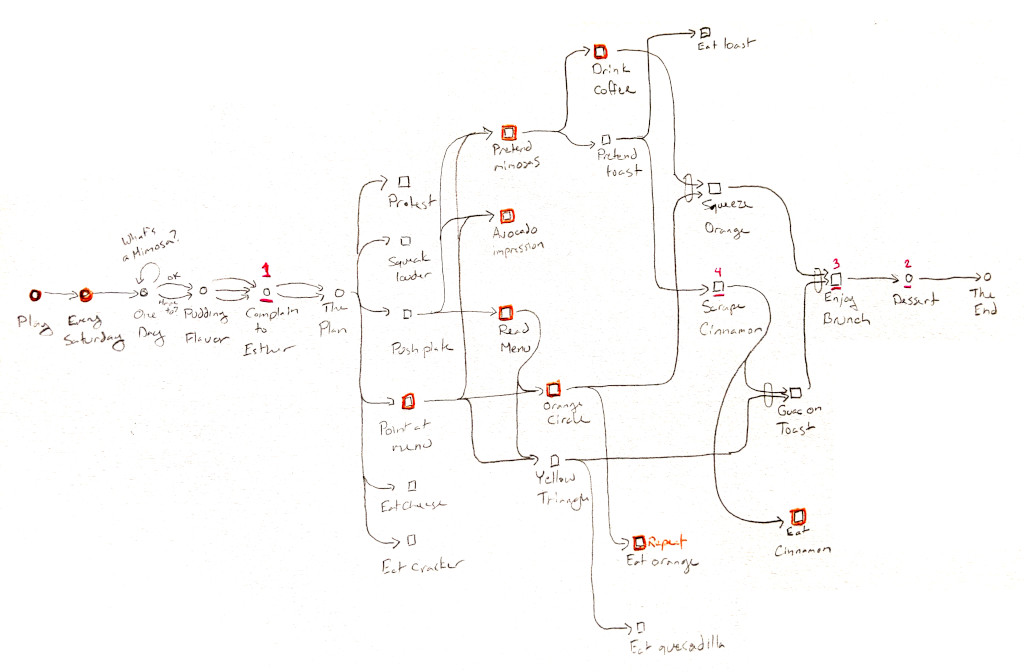 Play
Every
Saturday
What's
a Mimosa?
OK
Have
to?
One
Day
Pudding
Flavor
1
Complain
to
Esther
The
Plan
Protest
Squeak
louder
Push plate
Point at
menu
Eat Cheese
Eat Cracker
Pretend
mimosas
Avocado
impression
Read
Menu
Orange
Circle
Yellow
Triangle
Drink
coffee
Pretend
toast
Eat toast
Squeeze
Orange
4
Scrape
Cinnamon
Repeat
Eat orange
Eat quecadilla
Guac on
Toast
Eat
Cinnamon
3
Enjoy
Brunch
2
Dessert
The
End